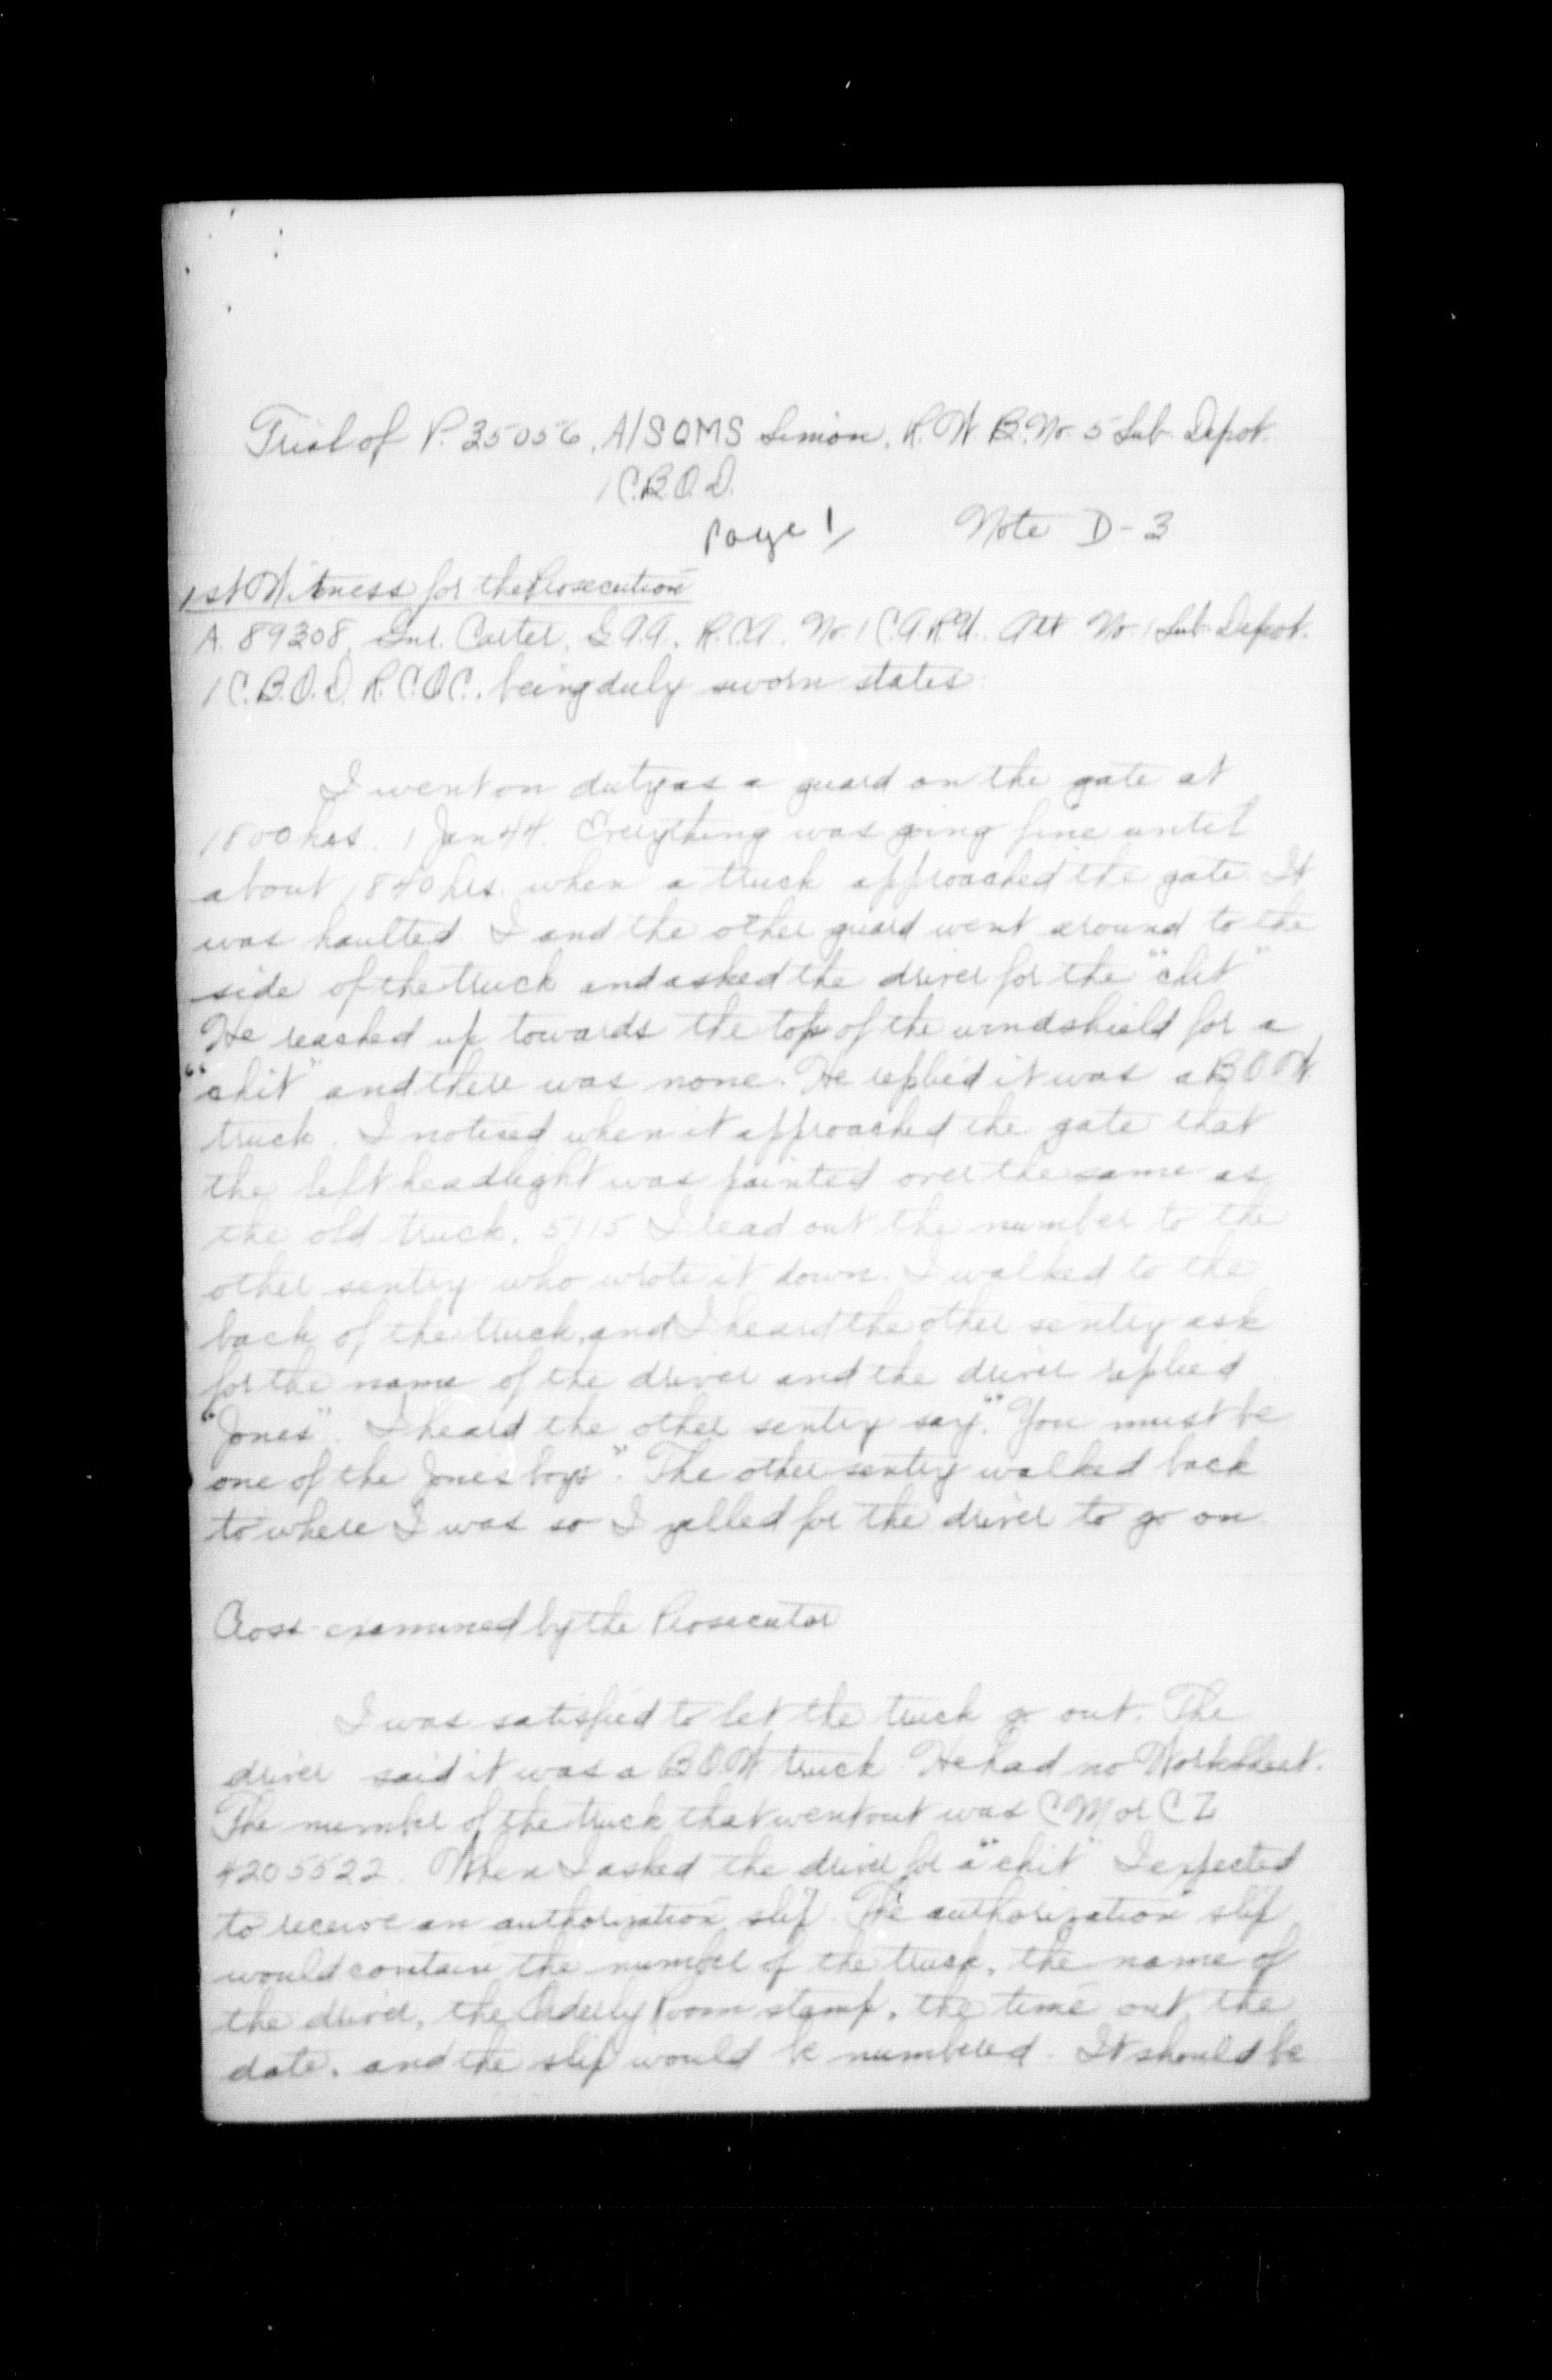 Trial of P. 35056, A/SQMS Simon, R. W B. No. 5 Sub. Depot.
1 C.B.O.D.
Page 1/ Note D-3
1st Witness for the Prosecution
A. 89308, Gnr. Carter, G.A.A., R.C.A. No. 1 C.A.R.U. Att No. 1 Sub. Depot.
1 C.B.O.D. R.C.O.C. being duly sworn states:
I went on duty as a guard on the gate at
1800 hrs. 1 Jan 44. Everything was going fine until
about 1840 hrs. when a truck approached the gate. It
was haulted. I and the other guard went around to the
side of the truck and asked the driver for the "chit"
He reached up towards the top of the windshield for a
"chit" and there was none. He replied it was a B O W.
truck. I noticed when it approached the gate that
the left headlight was painted over the same as
the old truck, 5715 I read out the number to the
other sentry who wrote it down. I walked to the
back of the truck, and I heard the other sentry ask
for the name of the driver and the driver replied
"Jones". I heard the other sentry say, "You must be
one of the Jones boys". The other sentry walked back
to where I was so I yelled for the driver to go on
Cross-examined by the Prosecutor
I was satisfied to let the truck go out. The
driver said it was a B O W truck He had no Worksheet.
The number of the truck that went out was C M or C Z
4205522. When I asked the driver for a "chit" I expected
to receive an authorization slip. The authorization slip
would contain the number of the truck, the name of
the driver, the Orderly Room stamp, the time out, the
date, and the slip would be numbered. It should be